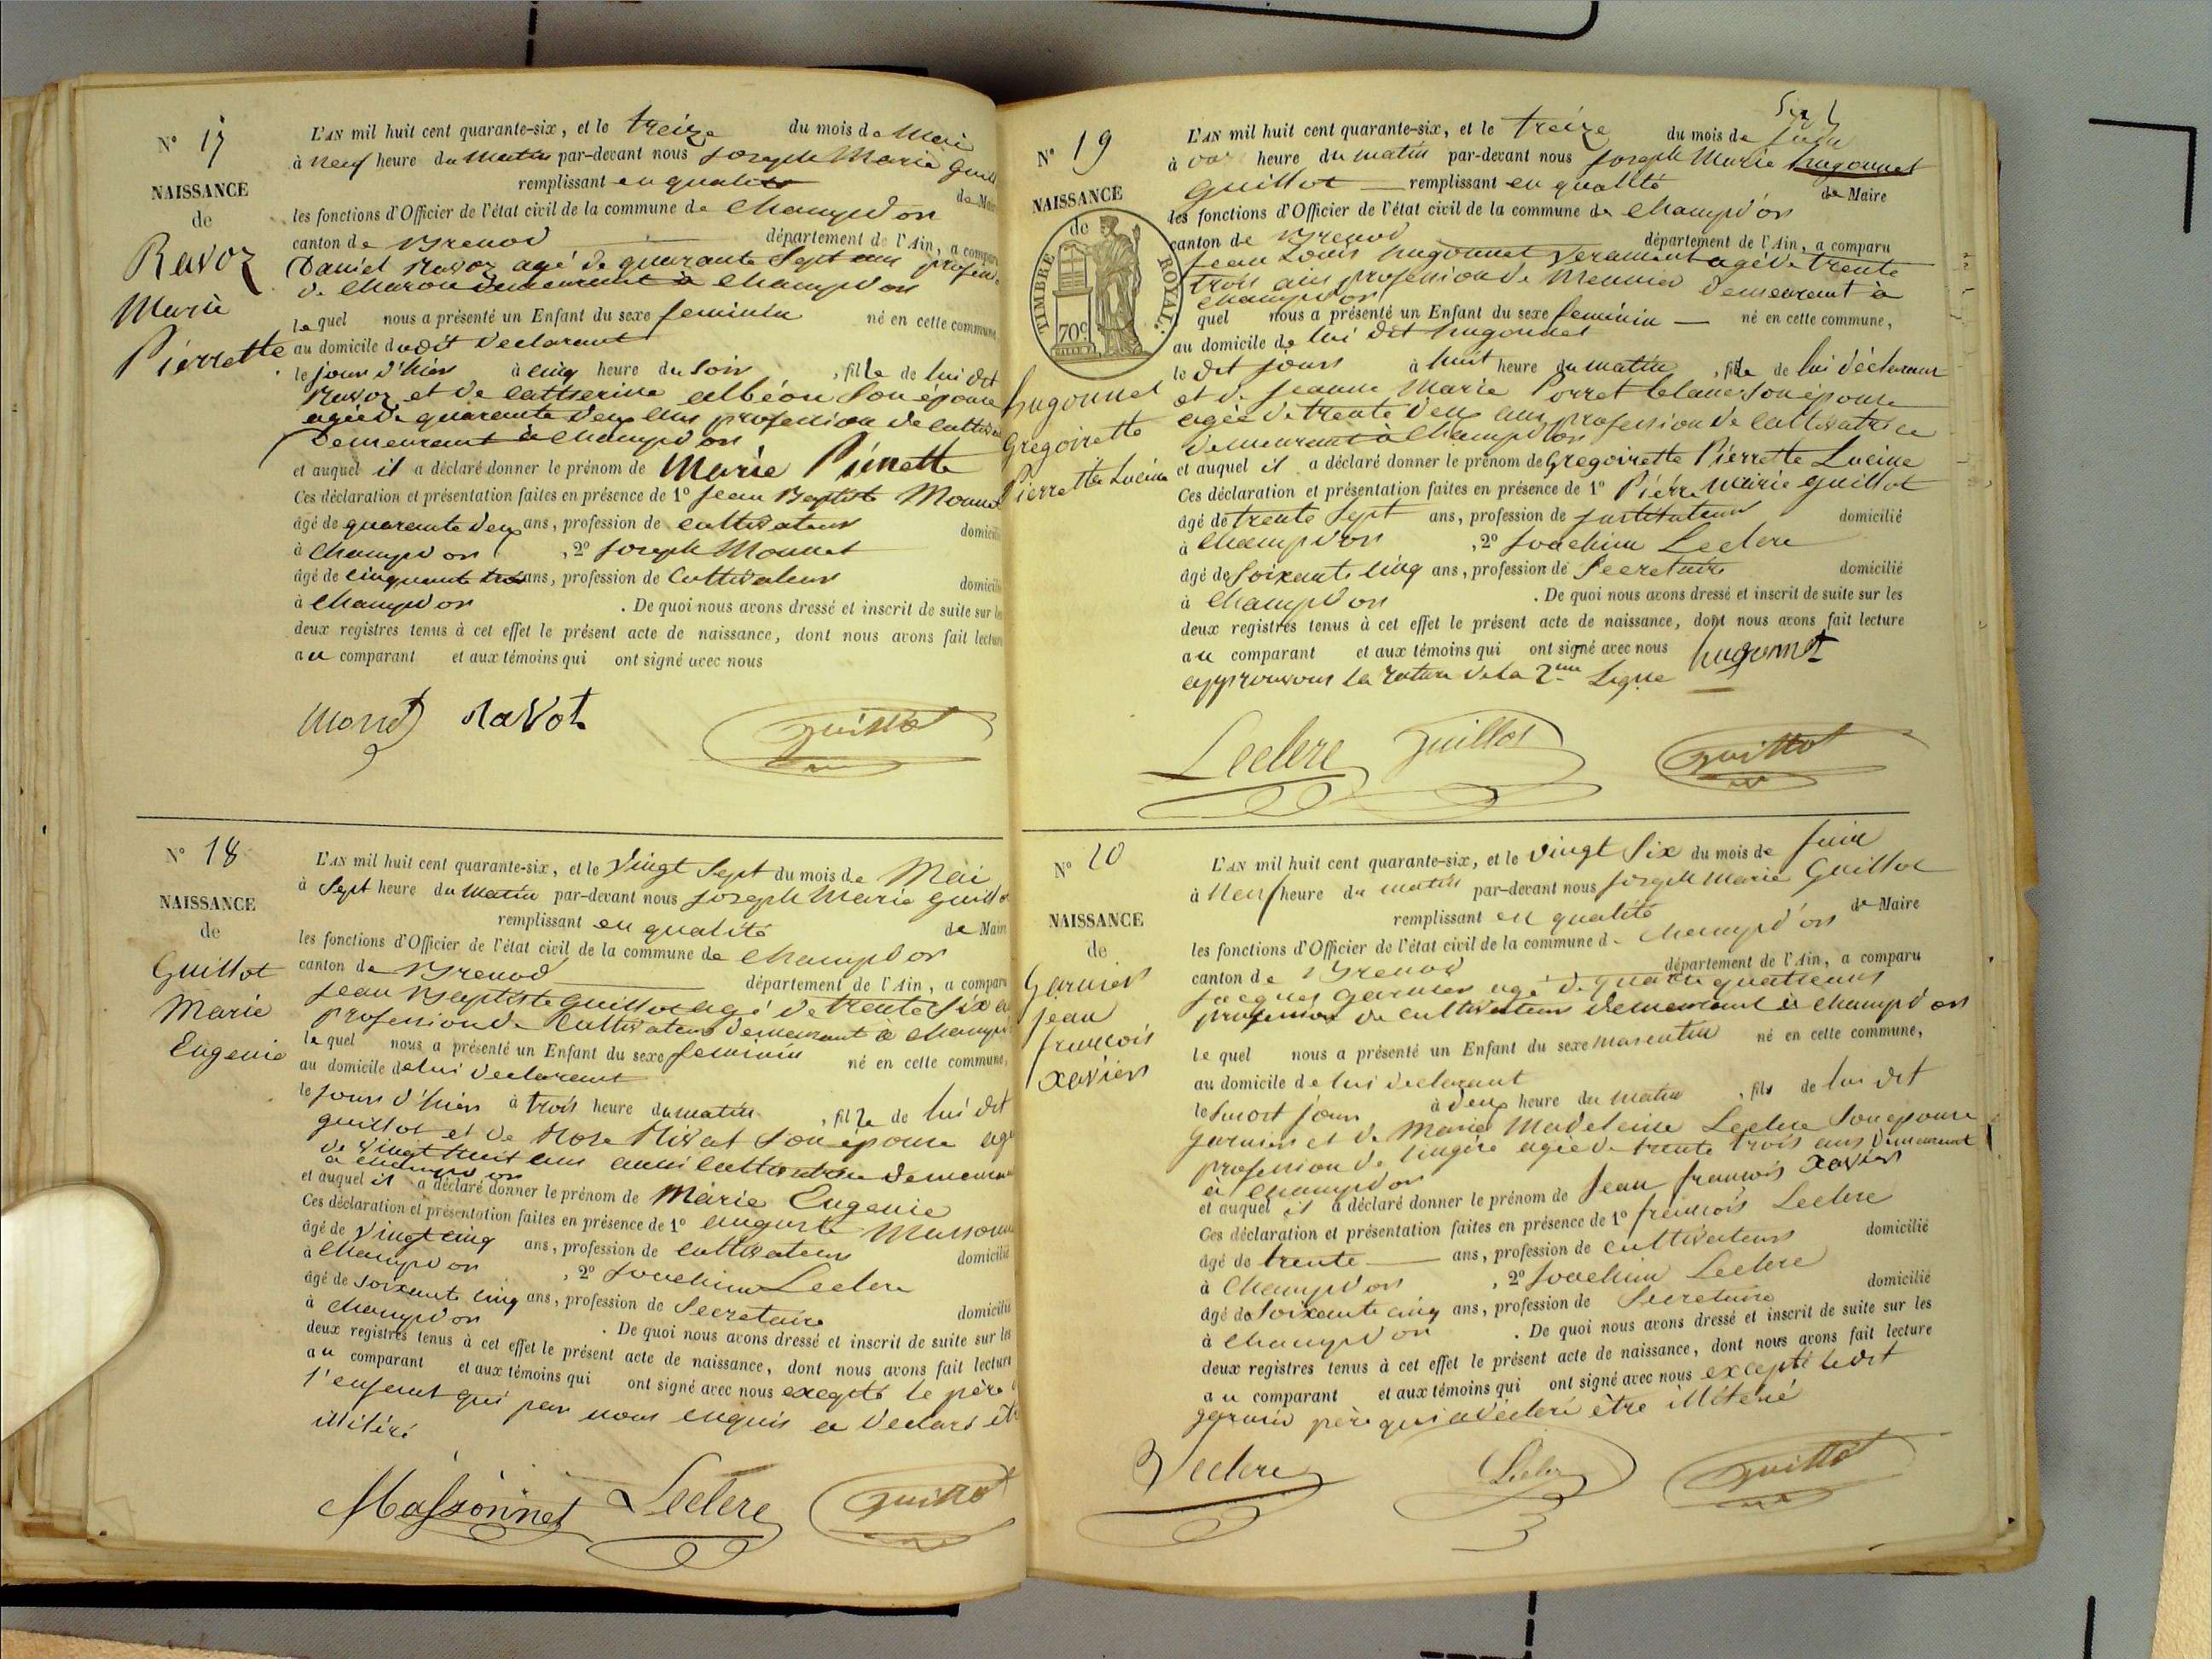 N° 17
NAISSANCE
de
Ravoz
Marie
Pierrette
L'AN mil huit cent quarante-six, et le treize du mois de Mai
à neuf heure du Matin par-devant nous Joseph Marie Guill
remplissant en qualité de Mai
les fonctions d'Officier de l'état civil de la commune de Champd'or
canton de Brenod département de l'Ain, a compar
Daniel Ravoz agé de quarante Sept ans profess.
de Charon demeurant à Champd'or
lequel nous a présenté un Enfant du sexe feminin né en cette commune
au domicile dudit declarant
le jour d'hier à cinq heure du Soir, fille de lui dit
Ravoz et de Catherine albéou Son épouse
agée de quarante deux ans profession de cultiva
Demeurant à Champd'or
et auquel il a déclaré donner le prénom de Marie Pierrette
Ces déclaration et présentation faites en présence de 1° Jean Baptiste Monnet
âgé de quarante deux ans, profession de cultivateur domicilié
à Champd'or, 2° Joseph Monnet
âgé de cinquante trois ans, profession de Cultivateur domicilié
à Champd'or. De quoi nous avons dressé et inscrit de suite sur les
deux registres tenus à cet effet le présent acte de naissance, dont nous avons fait lecture
au comparant et aux témoins qui ont signé avec nous
Monnet Ravot Guillot
N° 18
NAISSANCE
de
Guillot
Marie
Eugenie
L'AN mil huit cent quarante-six, et le Vingt Sept du mois de Mai
à Sept heure du Matin par-devant nous Joseph Marie Guillot
remplissant en qualité de Maire
les fonctions d'Officier de l'état civil de la commune de Champd'or
canton de Brenod département de l'Ain, a comparu
Jean Baptiste Guillot agé de trente Six a
profession de Cultivateur demeurant à Champd
lequel nous a présenté un Enfant du sexe feminin né en cette commune,
au domicile de lui declarant
le jour d'hier à trois heure du matin, fille de lui dit
guillot et de Rose Nivat Son épouse agé
de Vingt huit ans aussi cultivatrice demeurant
à Champd'or
et auquel il a déclaré donner le prénom de Marie Eugenie
Ces déclaration et présentation faites en présence de 1° auguste Massonn
âgé de Vingt cinq ans, profession de cultivateur domicilié
à Champd'or, 2° Joachim Leclere
âgé de soixante cinq ans, profession de Secretaire domicilié
à Champd'or. De quoi nous avons dressé et inscrit de suite sur les
deux registres tenus à cet effet le présent acte de naissance, dont nous avons fait lecture
au comparant et aux témoins qui ont signé avec nous excepté le père
l'enfant qui par nous enquis a declaré êt
illitéré
Massonnet Leclere Guillot
N° 19
NAISSANCE
de
TIMBRE ROYAL
70c
hugonnet
Gregoirette
Pierrette Lucine
L'AN mil huit cent quarante-six, et le treize du mois de Juin
à heure du matin par-devant nous Joseph Marie hugonnet
Guillot remplissant en qualité de Maire
les fonctions d'Officier de l'état civil de la commune de Champd'or
canton de Brenod département de l'Ain, a comparu
Jean Louis hugonnet agé de trente
trois ans profession de Meunier demeurant à
Champd'or
quel nous a présenté un Enfant du sexe feminin né en cette commune,
au domicile de lui dit hugonnet
le dit jour à huit heure du matin, fille de lui déclarant
et de Jeanne Marie Porret blanc Son épouse
agée de trente deux ans profession de cultivatrice
demeurant à Champd'or
et auquel il a déclaré donner le prénom de Gregoirette Pierrette Lucine
Ces déclaration et présentation faites en présence de 1° Pierre Marie guillot
âgé de trente Sept ans, profession de Instituteur domicilié
à Champd'or, 2° Joachim Leclere
âgé de Soixante cinq ans, profession de Secretaire domicilié
à Champd'or. De quoi nous avons dressé et inscrit de suite sur les
deux registres tenus à cet effet le présent acte de naissance, dont nous avons fait lecture
au comparant et aux témoins qui ont signé avec nous hugonnet
approuvons la rature de la 2me Ligne
Leclere Guillot Guillot
N° 20
NAISSANCE
de
Garnier
Jean
francois
Xavier
L'AN mil huit cent quarante-six, et le vingt Six du mois de Juin
à Neuf heure du matin par-devant nous Joseph Marie Guillot
remplissant en qualité de Maire
les fonctions d'Officier de l'état civil de la commune d. Champd'or
canton de Brenod département de l'Ain, a comparu
Jacques Garnier agé de quatre ans
profession de cultivateur demeurant à Champd'or
lequel nous a présenté un Enfant du sexe masculin né en cette commune,
au domicile de lui declarant
le Susdit jour à deux heure du matin, fils de lui dit
Garnier et de Marie Madeleine Leclere Son épouse
profession de lingère agée de trente trois ans demeurant
à Champd'or
et auquel il a déclaré donner le prénom de Jean francois Xavier
Ces déclaration et présentation faites en présence de 1° francois Leclere
âgé de trente ans, profession de cultivateur domicilié
à Champd'or, 2° Joachim Leclere
âgé de Soixante cinq ans, profession de Secretaire domicilié
à Champd'or. De quoi nous avons dressé et inscrit de suite sur les
deux registres tenus à cet effet le présent acte de naissance, dont nous avons fait lecture
au comparant et aux témoins qui ont signé avec nous excepté ledit
garnier père qui a declaré être illitéré
Leclere Leclere Guillot